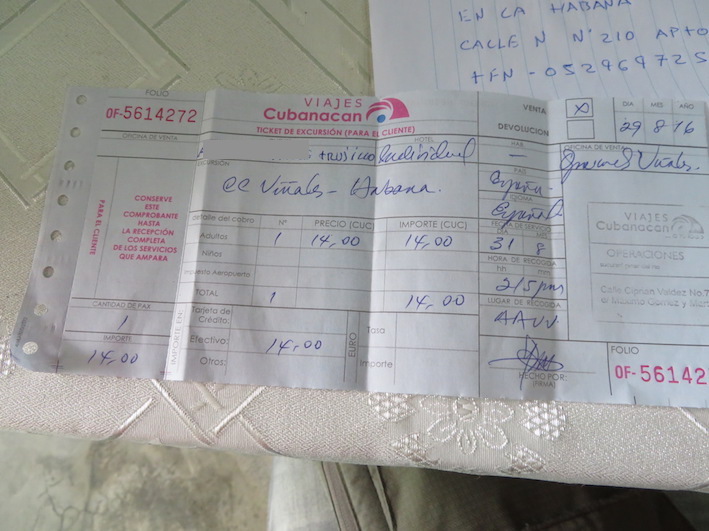 EN LA HABANA
CALLE N Nº 210 APTO
TFN - 052969725
FOLIO
OF-5614272
OFICINA DE VENTA
VIAJES
Cubanacan
TICKET DE EXCURSIÓN (PARA EL CLIENTE)
HOTEL
trujillo Individual
EXCURSIÓN
CC Viñales - Habana.
PARA EL CLIENTE
CONSERVE
ESTE
COMPROBANTE
HASTA
LA RECEPCIÓN
COMPLETA
DE LOS SERVICIOS
QUE AMPARA
detalle del cobro Nº PRECIO (CUC) IMPORTE (CUC)
Adultos 1 14,00 14,00
Niños
Impuesto Aeropuerto
TOTAL 1 14,00
CANTIDAD DE PAX
1
IMPORTE
14,00
IMPORTE EN:
Tarjeta de
Crédito:
Efectivo: 14,00
Otros:
EURO
Tasa
Importe
VENTA X
DEVOLUCION
DIA MES AÑO
29 8 16
HAB.
-
PAIS
España
IDIOMA
Español
FECHA DE SERVICIO
DIA MES
31 8
HORA DE RECOGIDA
hh mm
215 pm
LUGAR DE RECOGIDA
AAVV
HECHO POR:
(FIRMA)
OFICINA DE VENTA
Viñales.
VIAJES
Cubanacan
OPERACIONES
Calle Ciprian Valdez No.7
FOLIO
OF-56142